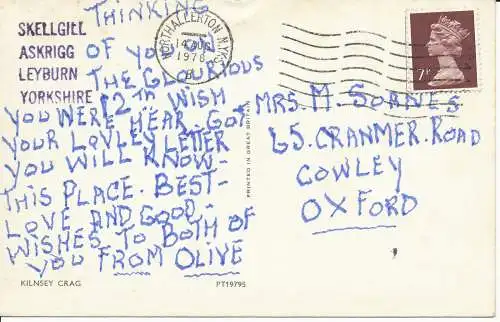 SKELLGILL
ASKRIGG
LEYBURN
YORKSHIRE
THINKING
OF YOU ON
THE GLOURIOUS
12TH WISH
YOU WERE HEAR. GOT
YOUR LOVLEY LETTER
YOU WILL KNOW-
THIS PLACE. BEST-
LOVE AND GOOD-
WISHES TO BOTH OF
YOU FROM OLIVE
KILNSEY CRAG
PT19795
PRINTED IN GREAT BRITAIN
NORTHALLERTON N. YORKS
14 AUG
1978
7P
MRS. M. SOANES
65. CRANMER. ROAD
COWLEY
OXFORD